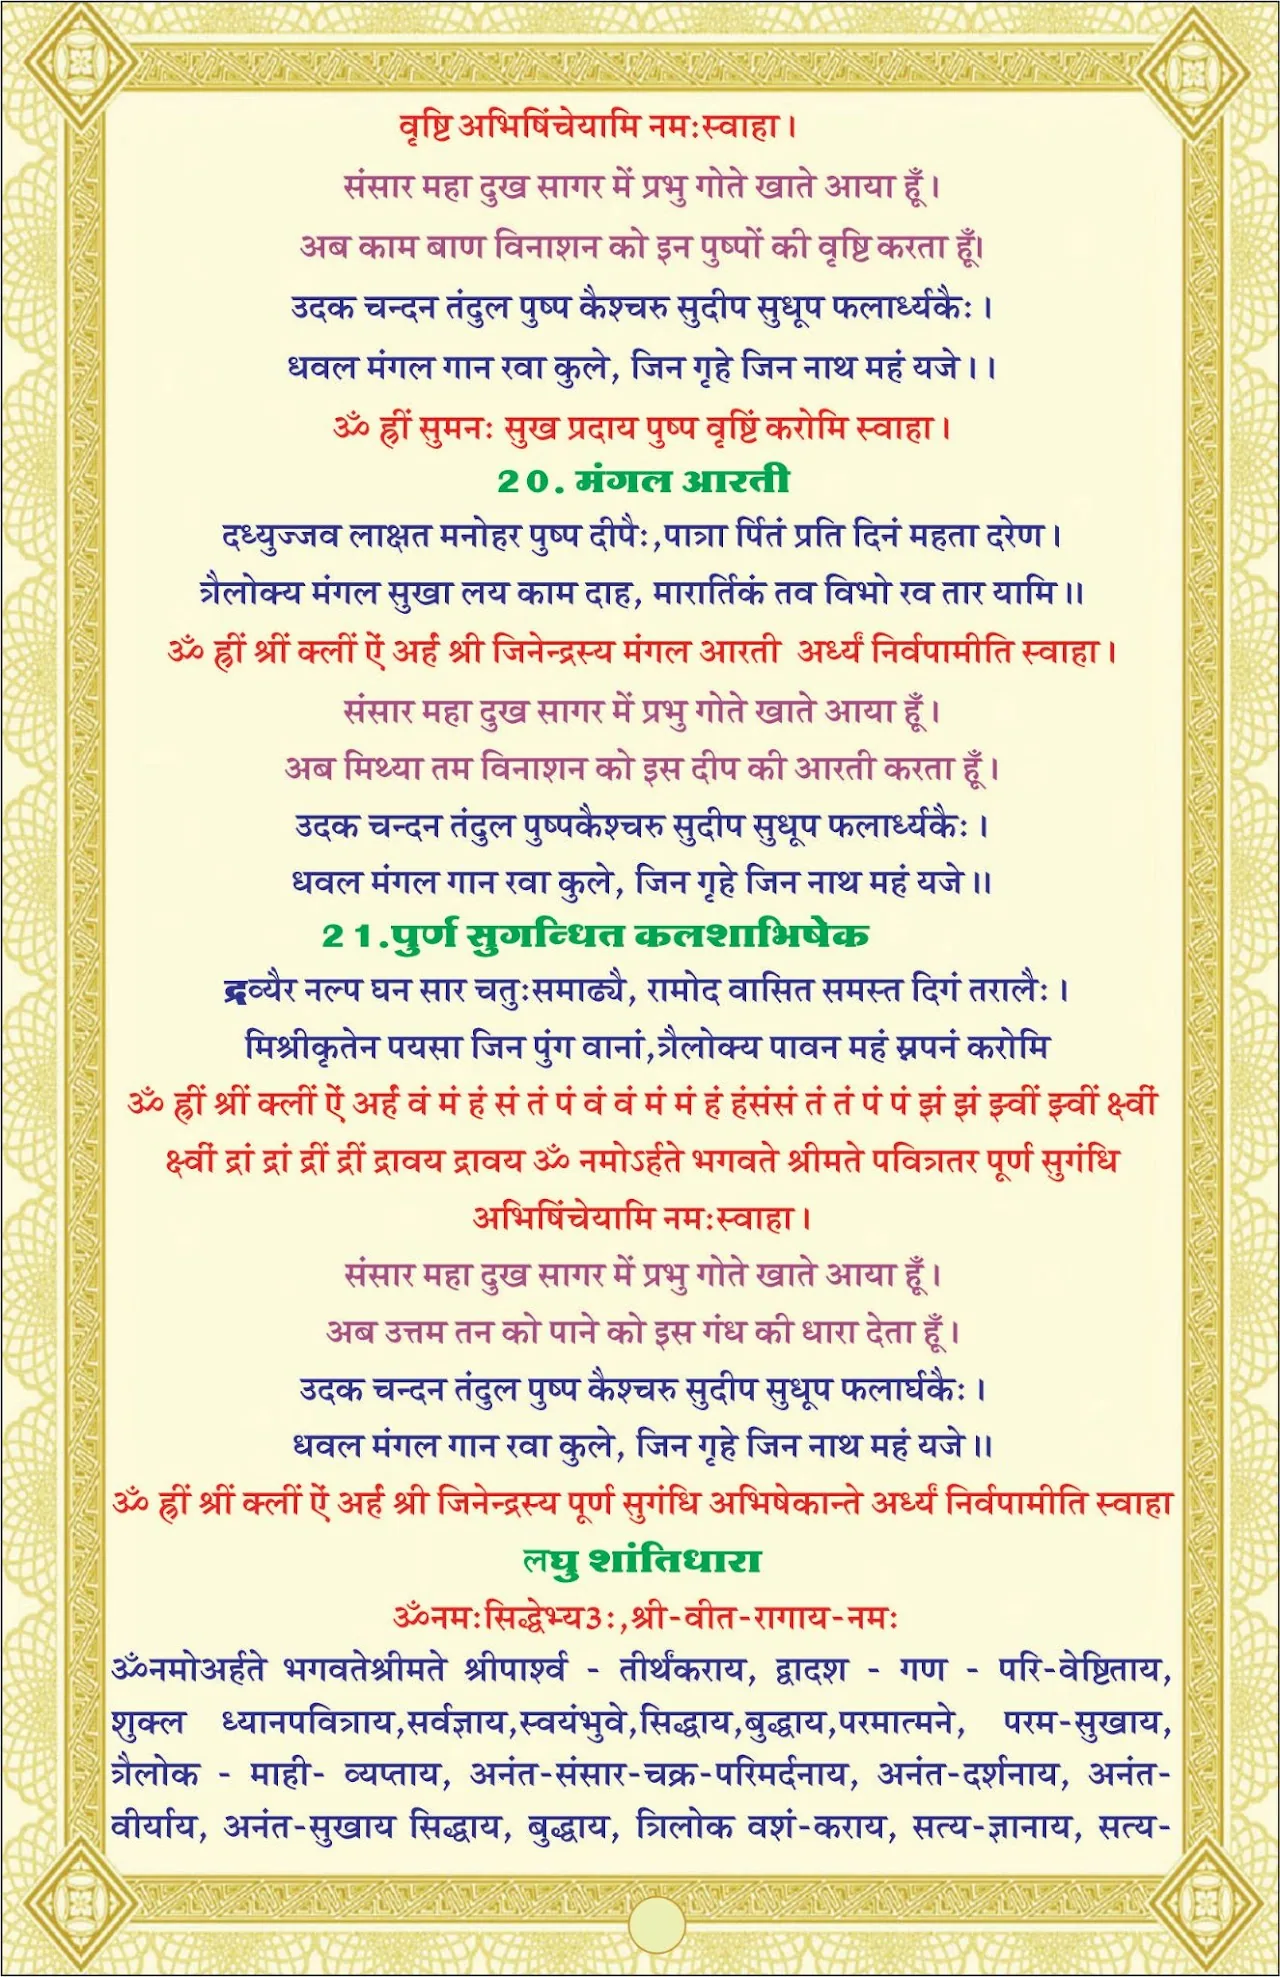 वृष्टि अभिषिंचेयामि नमःस्वाहा।
संसार महा दुख सागर में प्रभु गोते खाते आया हूँ।
अब काम बाण विनाशन को इन पुष्पों की वृष्टि करता हूँ।
उदक चन्दन तंदुल पुष्प कैश्चरु सुदीप सुधूप फलार्ध्यकैः।
धवल मंगल गान रवा कुले, जिन गृहे जिन नाथ महं यजे।।
ॐ ह्रीं सुमनः सुख प्रदाय पुष्प वृष्टिं करोमि स्वाहा।
20. मंगल आरती
दध्युज्जव लाक्षत मनोहर पुष्प दीपैः,पात्रा र्पितं प्रति दिनं महता दरेण।
त्रैलोक्य मंगल सुखा लय काम दाह, मारार्तिकं तव विभो रव तार यामि॥
ॐ ह्रीं श्रीं क्लीं ऐं अर्हं श्री जिनेन्द्रस्य मंगल आरती अर्ध्यं निर्वपामीति स्वाहा।
संसार महा दुख सागर में प्रभु गोते खाते आया हूँ।
अब मिथ्या तम विनाशन को इस दीप की आरती करता हूँ।
उदक चन्दन तंदुल पुष्पकैश्चरु सुदीप सुधूप फलार्ध्यकैः।
धवल मंगल गान रवा कुले, जिन गृहे जिन नाथ महं यजे॥
21.पुर्ण सुगन्धित कलशाभिषेक
द्रव्यैर नल्प घन सार चतुःसमाढ्यै, रामोद वासित समस्त दिगं तरालैः।
मिश्रीकृतेन पयसा जिन पुंग वानां,त्रैलोक्य पावन महं स्नपनं करोमि
ॐ ह्रीं श्रीं क्लीं ऐं अर्हं वं मं हं सं तं पं वं वं मं मं हं हंसंसं तं तं पं पं झं झं झ्वीं झ्वीं क्ष्वीं
क्ष्वीं द्रां द्रां द्रीं द्रीं द्रावय द्रावय ॐ नमोऽर्हते भगवते श्रीमते पवित्रतर पूर्ण सुगंधि
अभिषिंचेयामि नमःस्वाहा।
संसार महा दुख सागर में प्रभु गोते खाते आया हूँ।
अब उत्तम तन को पाने को इस गंध की धारा देता हूँ।
उदक चन्दन तंदुल पुष्प कैश्चरु सुदीप सुधूप फलार्घकैः।
धवल मंगल गान रवा कुले, जिन गृहे जिन नाथ महं यजे॥
ॐ ह्रीं श्रीं क्लीं ऐं अर्हं श्री जिनेन्द्रस्य पूर्ण सुगंधि अभिषेकान्ते अर्ध्यं निर्वपामीति स्वाहा
लघु शांतिधारा
ॐनमःसिद्धेभ्य3ः,श्री-वीत-रागाय-नमः
ॐनमोअर्हते भगवतेश्रीमते श्रीपार्श्व - तीर्थंकराय, द्वादश - गण - परि-वेष्टिताय,
शुक्ल ध्यानपवित्राय,सर्वज्ञाय,स्वयंभुवे,सिद्धाय,बुद्धाय,परमात्मने, परम-सुखाय,
त्रैलोक - माही- व्यप्ताय, अनंत-संसार-चक्र-परिमर्दनाय, अनंत-दर्शनाय, अनंत-
वीर्याय, अनंत-सुखाय सिद्धाय, बुद्धाय, त्रिलोक वशं-कराय, सत्य-ज्ञानाय, सत्य-